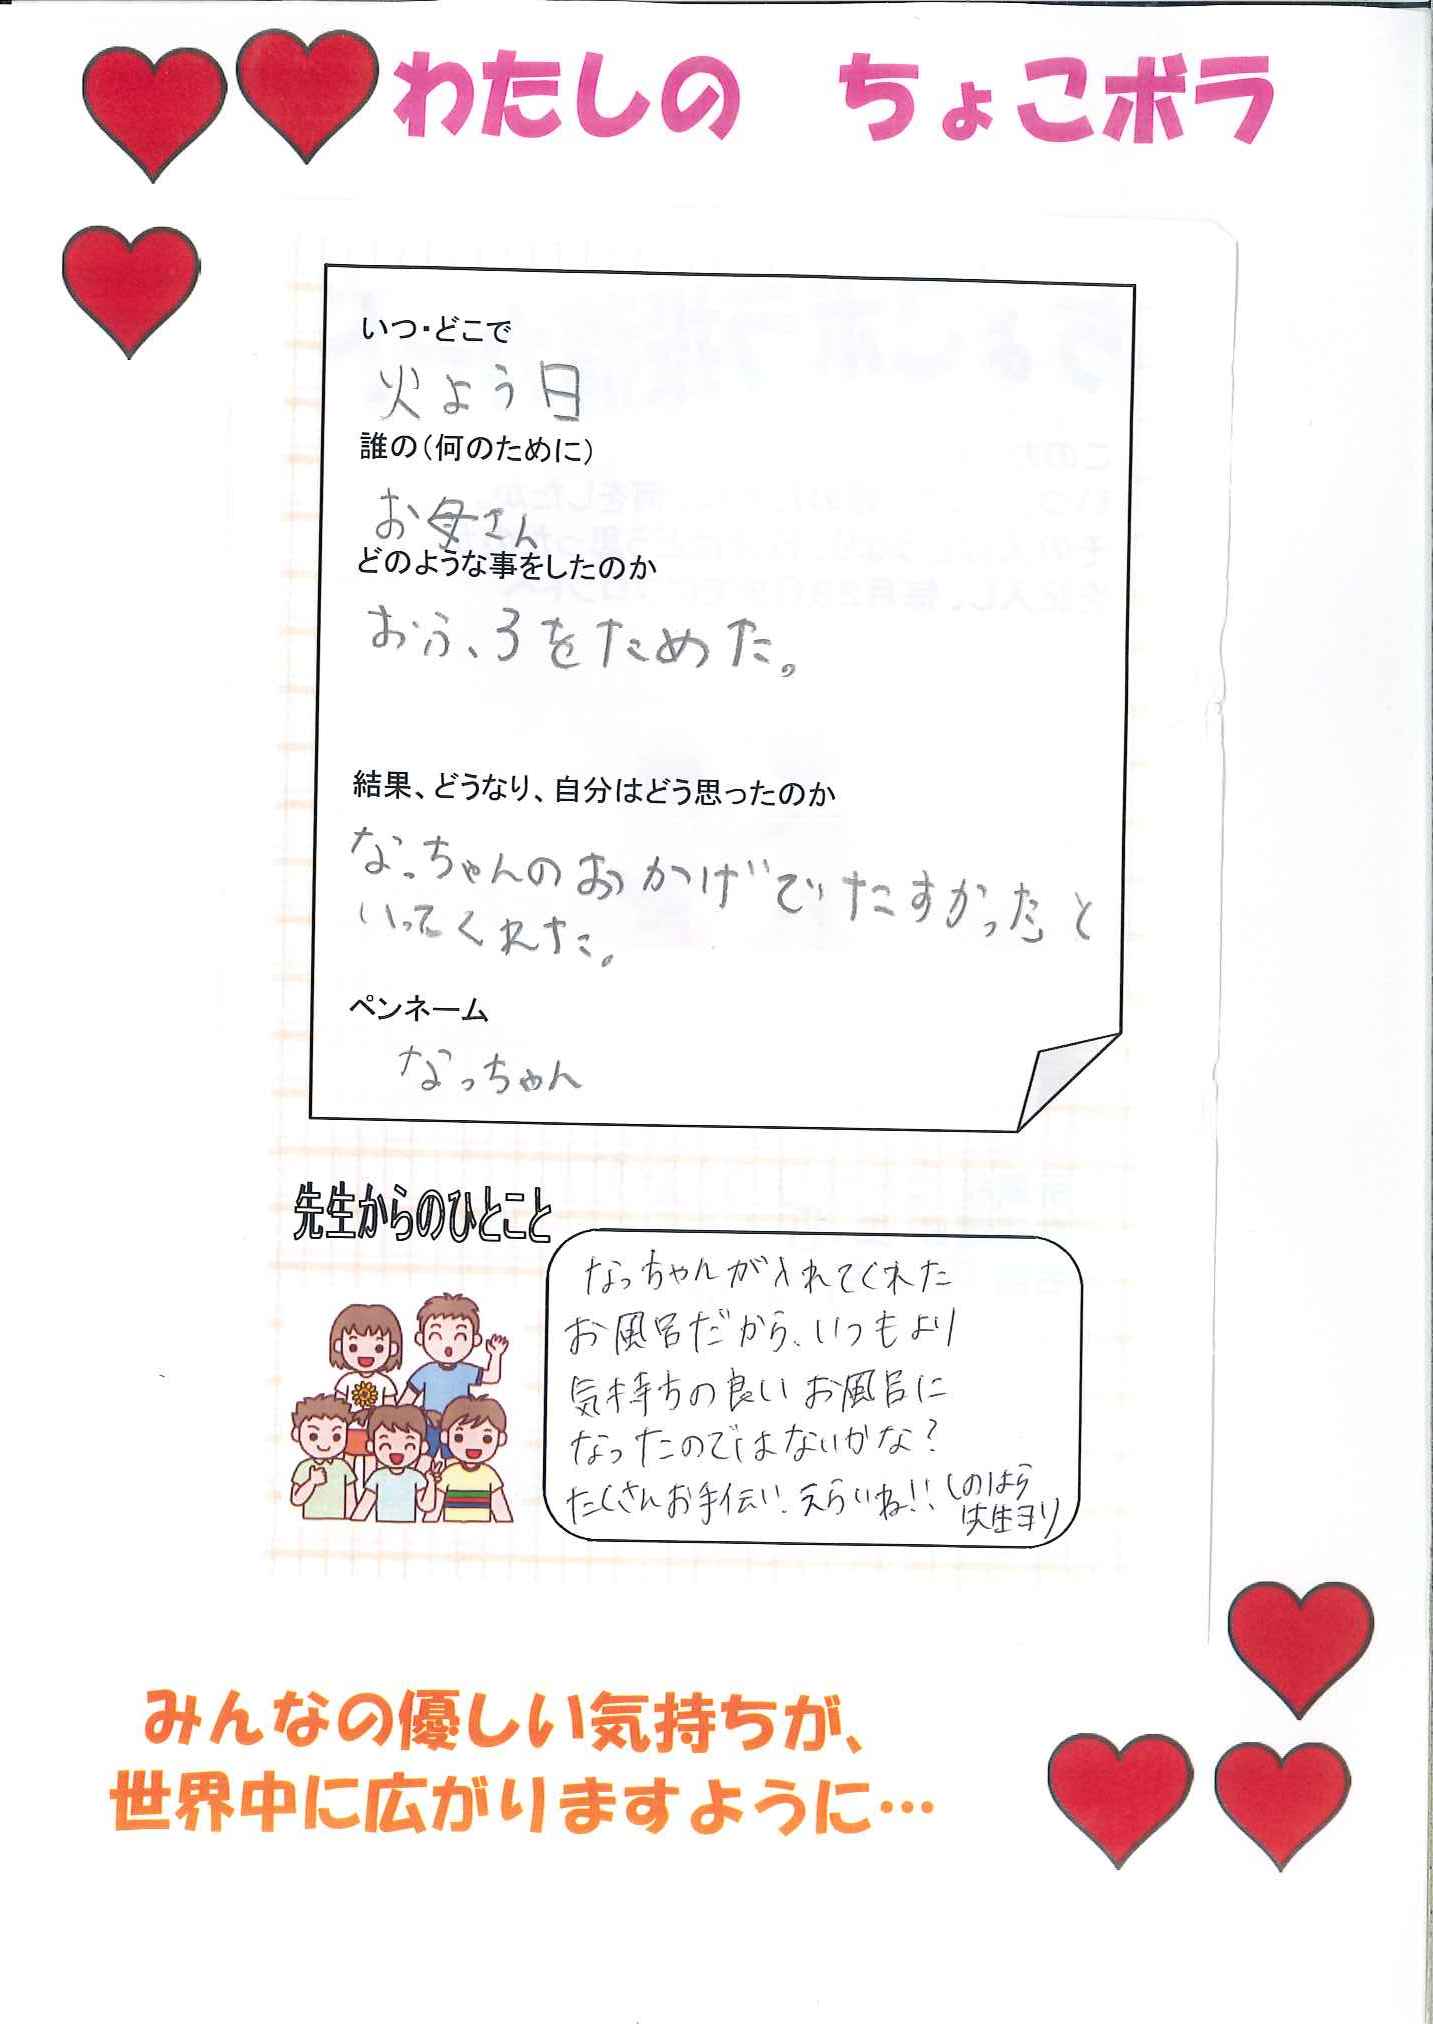 わたしの　ちょこボラ
いつ・どこで
火よう日
誰の（何のために）
お母さん
どのような事をしたのか
おふろをためた。
結果、どうなり、自分はどう思ったのか
なっちゃんのおかげでたすかったと
いってくれた。
ペンネーム
なっちゃん
先生からのひとこと
なっちゃんが入れてくれた
お風呂だから、いつもより
気持ちの良いお風呂に
なったのではないかな？
たくさんお手伝い、えらいね!!
しのはら
先生ヨリ
みんなの優しい気持ちが、
世界中に広がりますように…